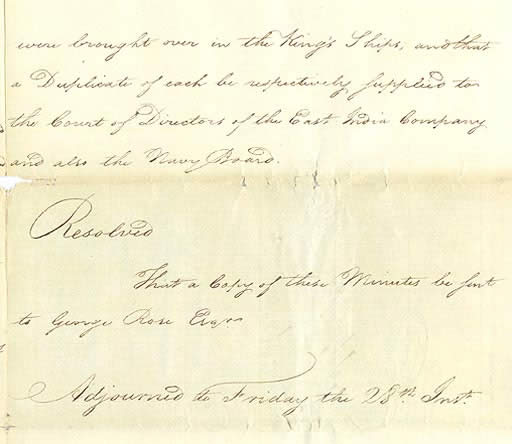 were brought over in the King's Ships, and that
a Duplicate of each be respectively supplied to
the Court of Directors of the East India Company
and also the Navy Board.
Resolved
That a Copy of these Minutes be sent
to George Rose Esqr
Adjourned to Friday the 28th. Inst.